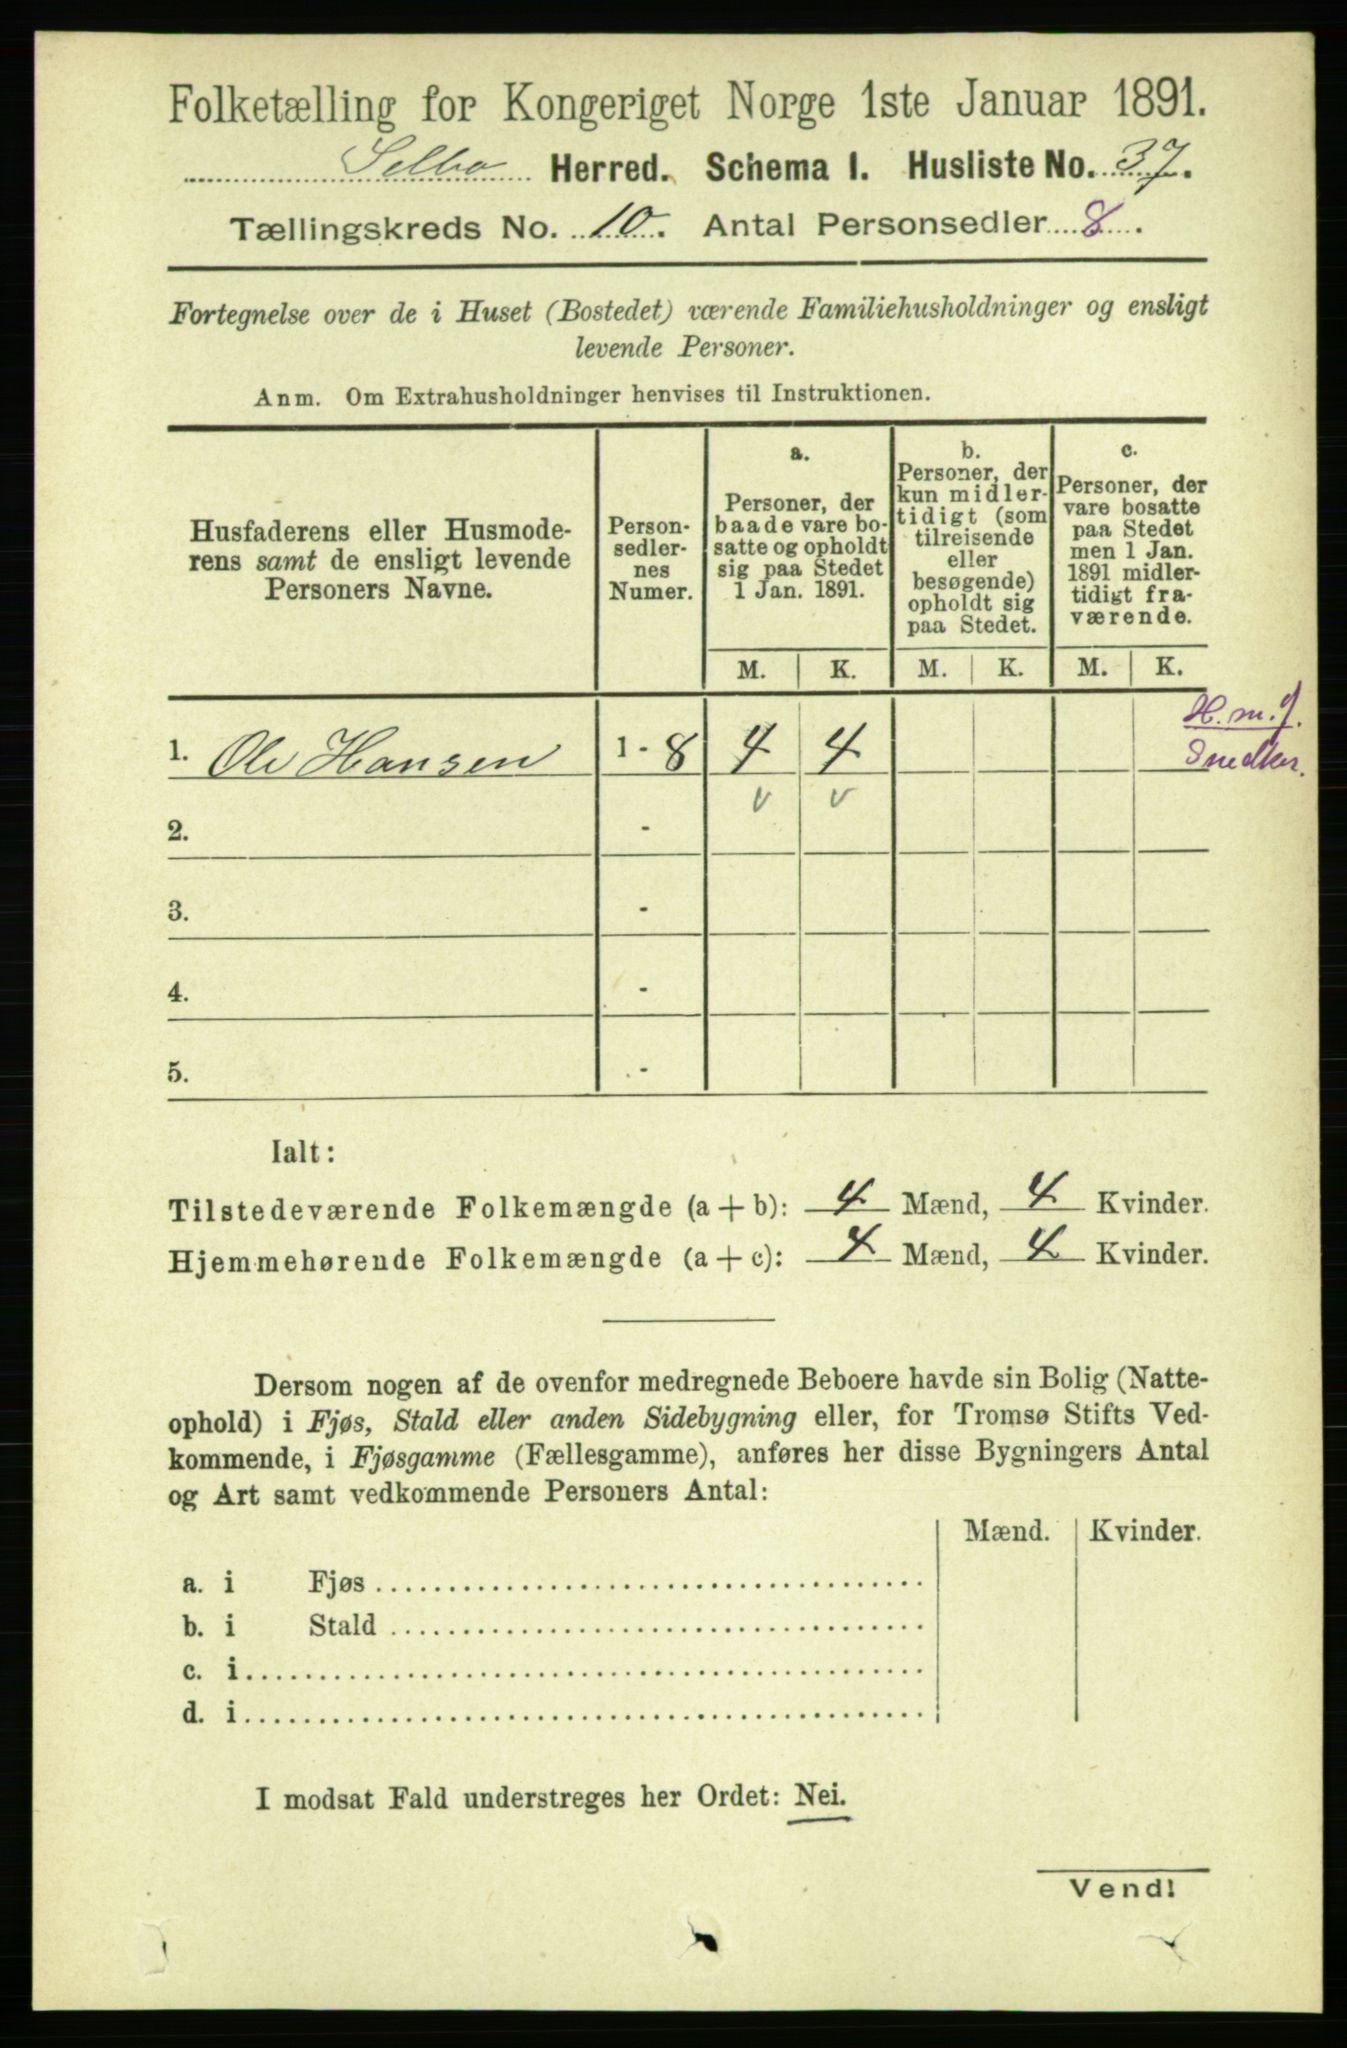 Folketælling for Kongeriget Norge 1ste Januar 1891.
Selbo Herred. Schema I. Husliste No. 37.
Tællingskreds No. 10. Antal Personsedler 8.
Fortegnelse over de i Huset (Bostedet) værende Familiehusholdninger og ensligt
levende Personer.
Anm. Om Extrahusholdninger henvises til Instruktionen.
Husfaderens eller Husmode-
rens samt de ensligt levende
Personers Navne.
Person-
sedler-
nes
Numer.
a.
Personer, der
baade vare bo-
satte og opholdt
sig paa Stedet
1 Jan. 1891.
b.
Personer, der
kun midler-
tidigt (som
tilreisende
eller
besøgende)
opholdt sig
paa Stedet.
c.
Personer, der
vare bosatte
paa Stedet
men 1 Jan.
1891 midler-
tidigt fra-
værende.
M. K. M. K. M. K.
H. m. J.
Snedker.
1. Ole Hansen 1 - 8 4 4
v v
2. -
3. -
4. -
5. -
Ialt:
Tilstedeværende Folkemængde (a + b): 4 Mænd, 4 Kvinder.
Hjemmehørende Folkemængde (a + c): 4 Mænd, 4 Kvinder.
Dersom nogen af de ovenfor medregnede Beboere havde sin Bolig (Natte-
ophold) i Fjøs, Stald eller anden Sidebygning eller, for Tromsø Stifts Ved-
kommende, i Fjøsgamme (Fællesgamme), anføres her disse Bygningers Antal
og Art samt vedkommende Personers Antal:
Mænd. Kvinder.
a. i Fjøs
b. i Stald
c. i
d. i
I modsat Fald understreges her Ordet: Nei.
Vend!